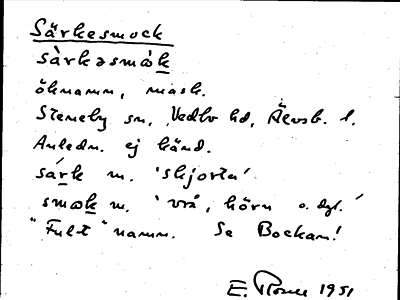 Särkesmock
sàrkəsmàk
öknamn, mask.
Steneby sn, Vedbo hd, Älvsb. l.
Anledn. ej känd.
särk m. 'skjorta'
smok m. 'vrå, hörn o. dyl.'
"Fult" namn. Se Bockam!
E. 1951